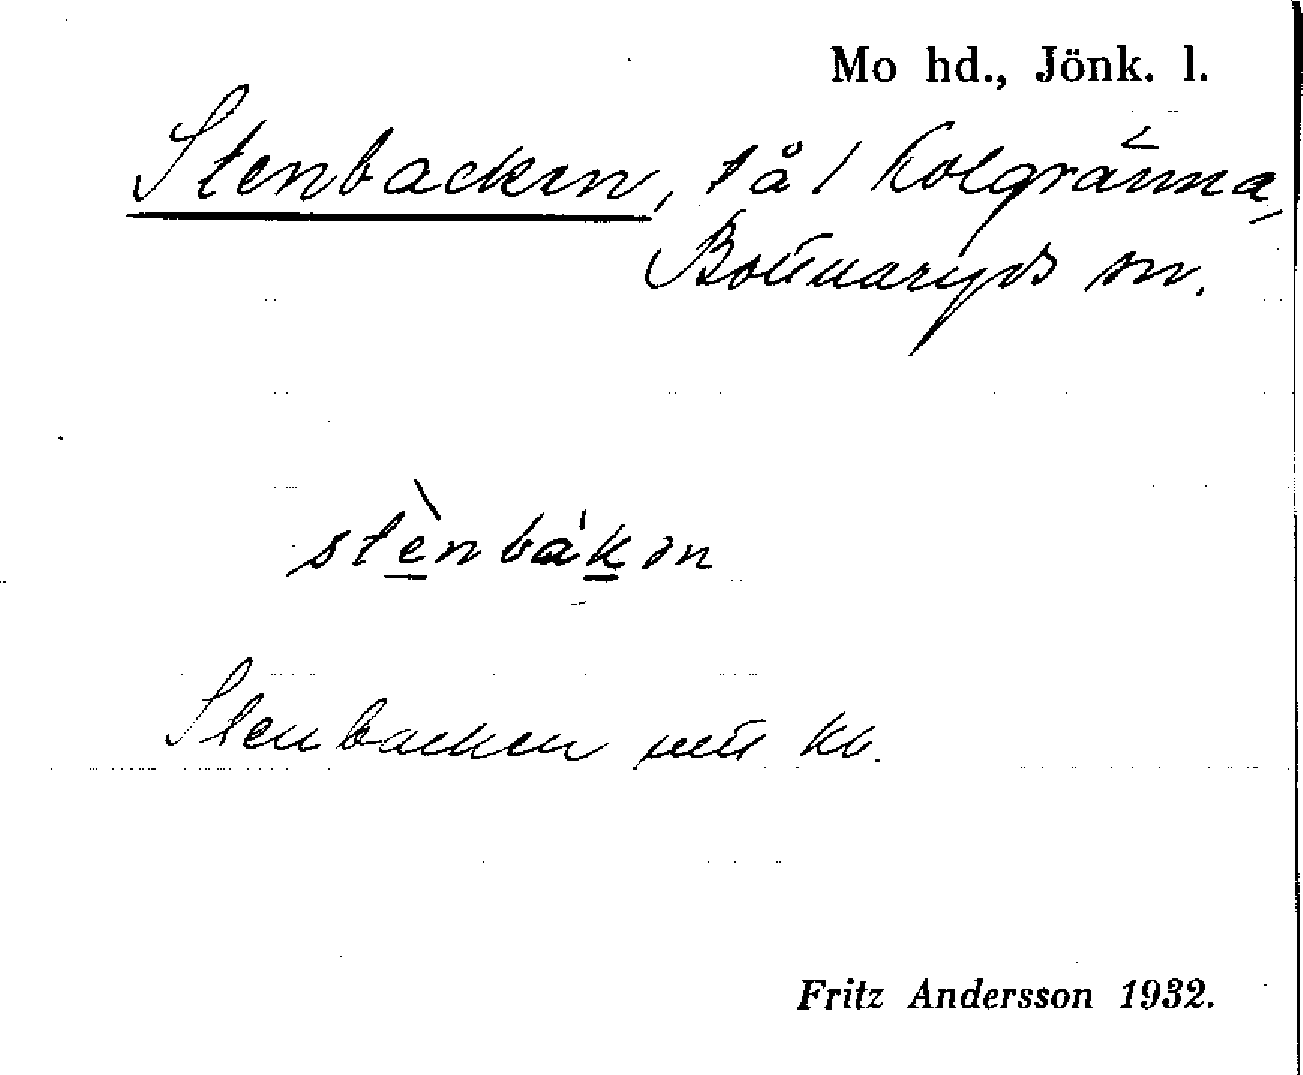 Mo hd., Jönk. l.
Stenbacken, t å / Kolgränna,
Bottnaryds sn.
stènbákən
Stenbacken kv.
Fritz Andersson 1932.